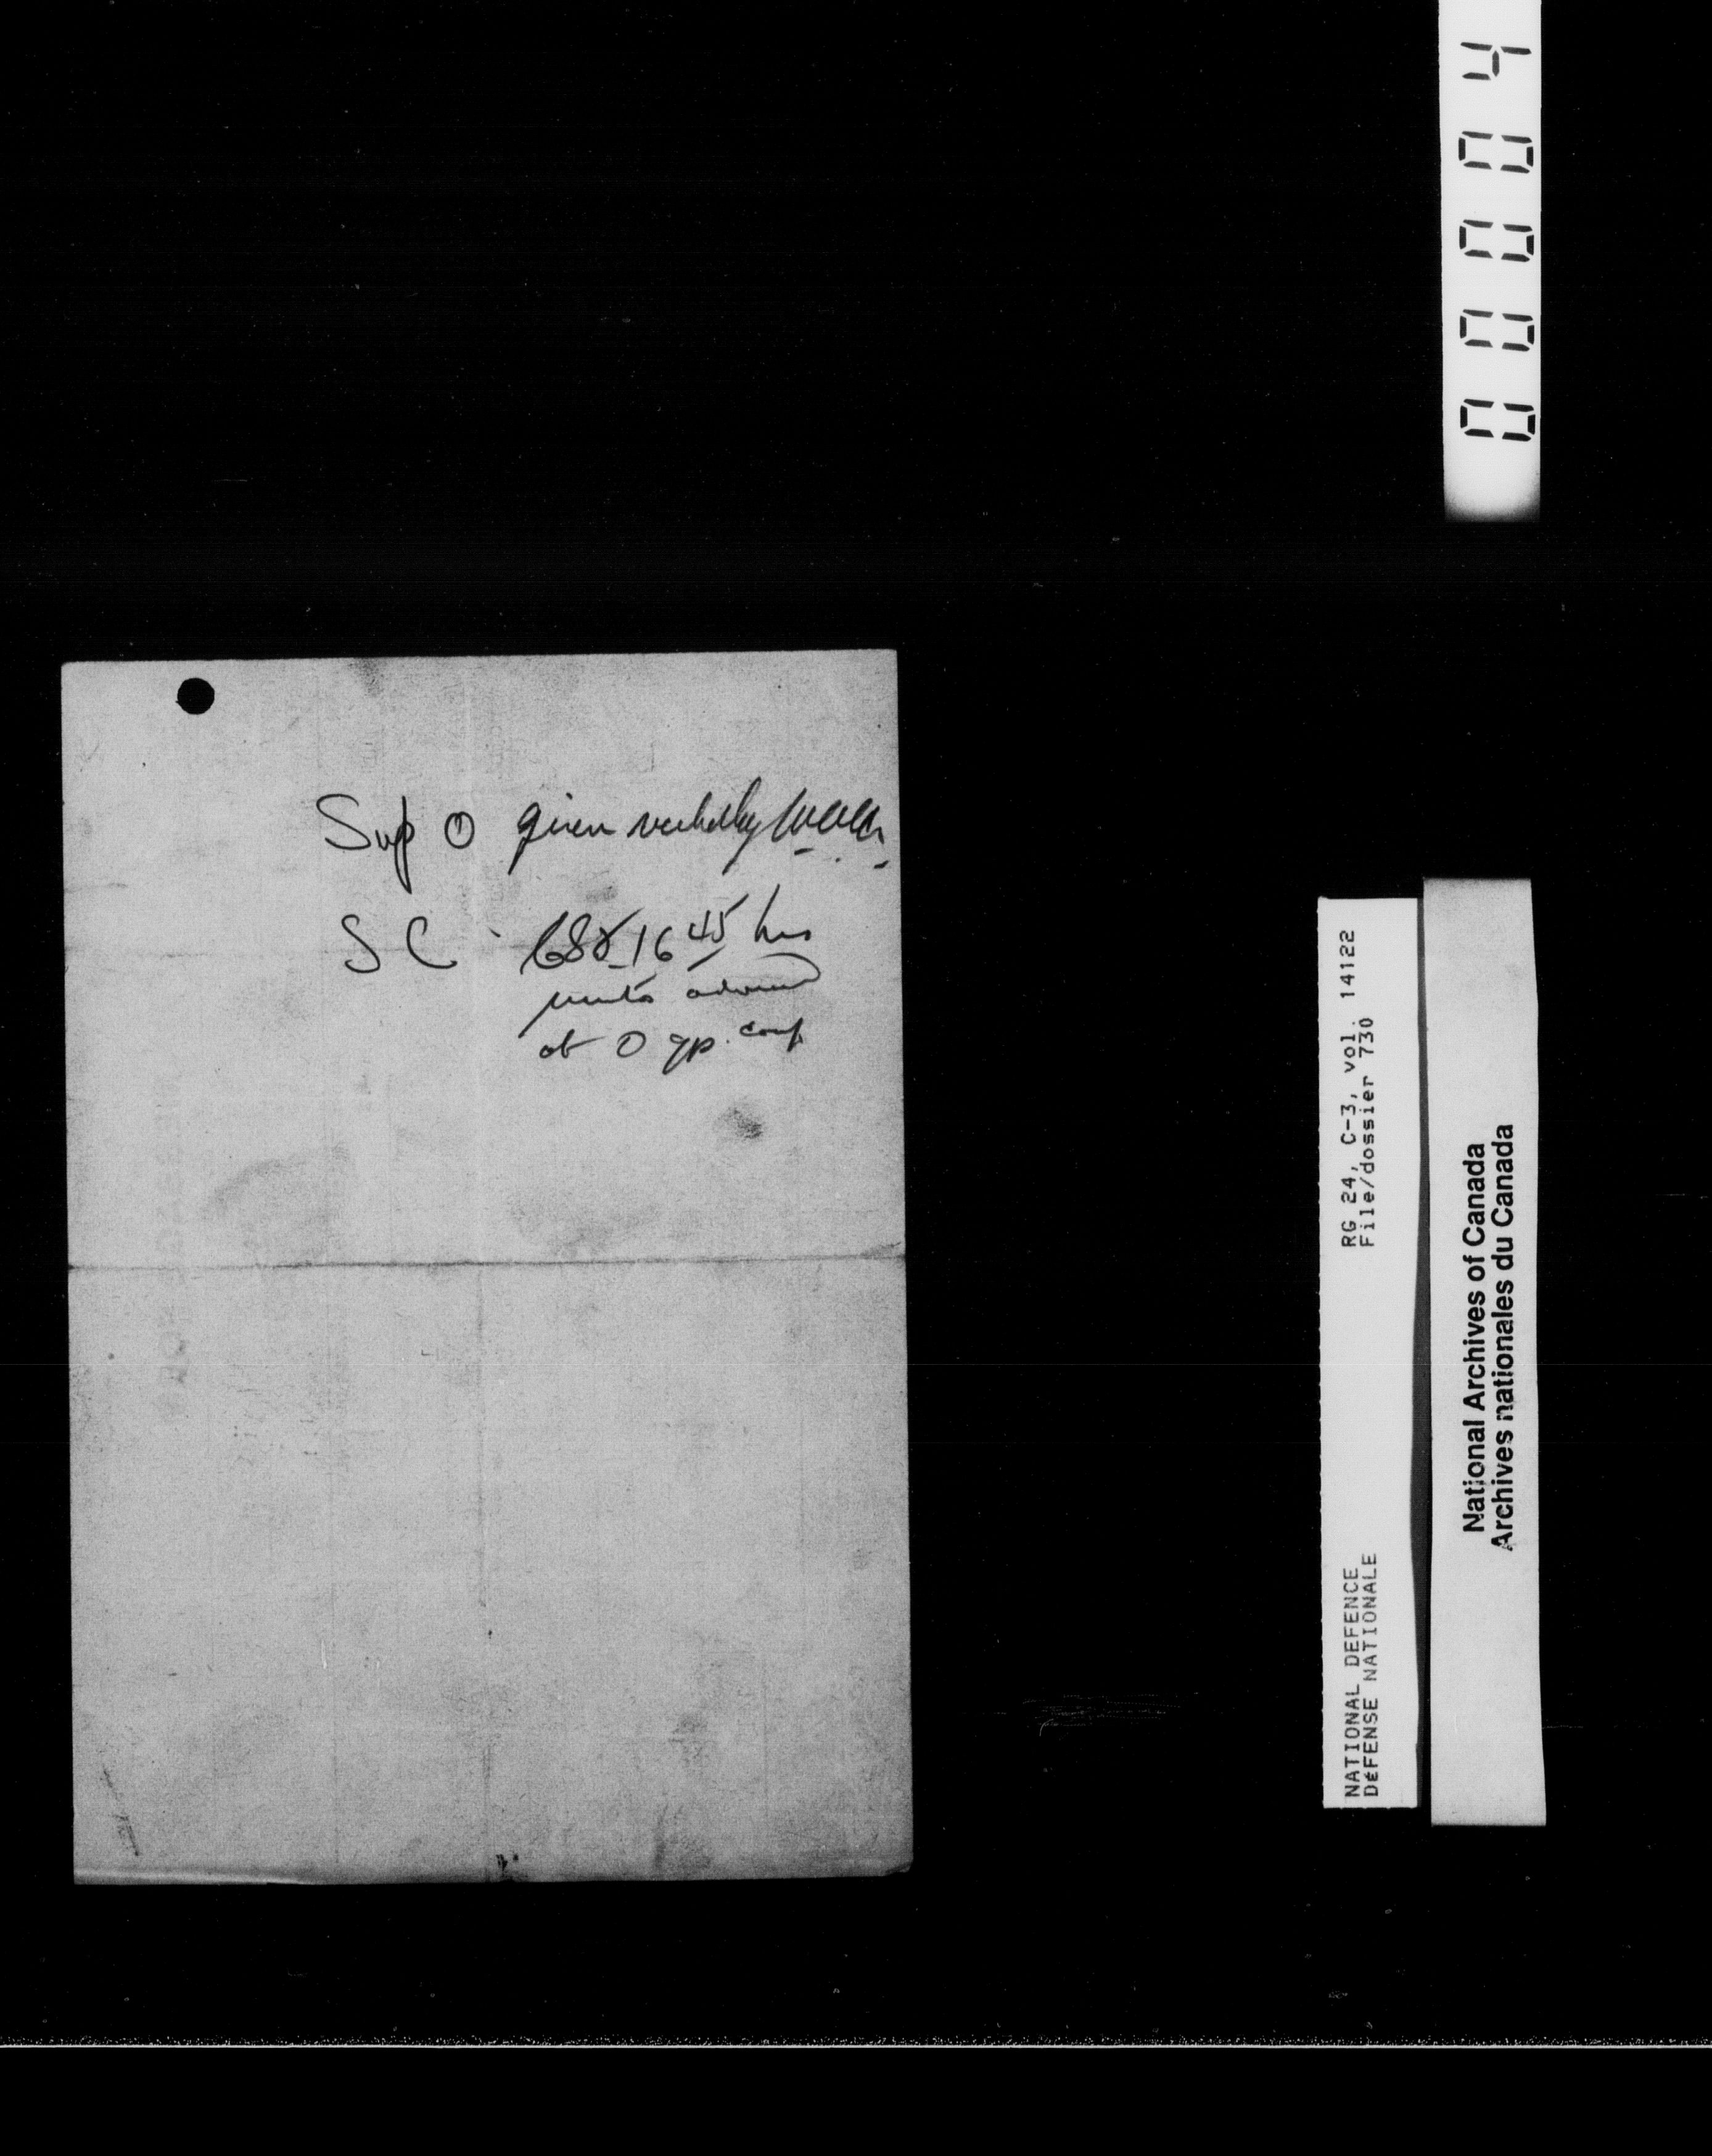 00004
Sup O given verbally
SC - 1645 hrs
units advised
at O gp. conf
RG 24, C-3, vol. 14122
File/dossier 730
NATIONAL DEFENCE
DÉFENSE NATIONALE
National Archives of Canada
Archives nationales du Canada